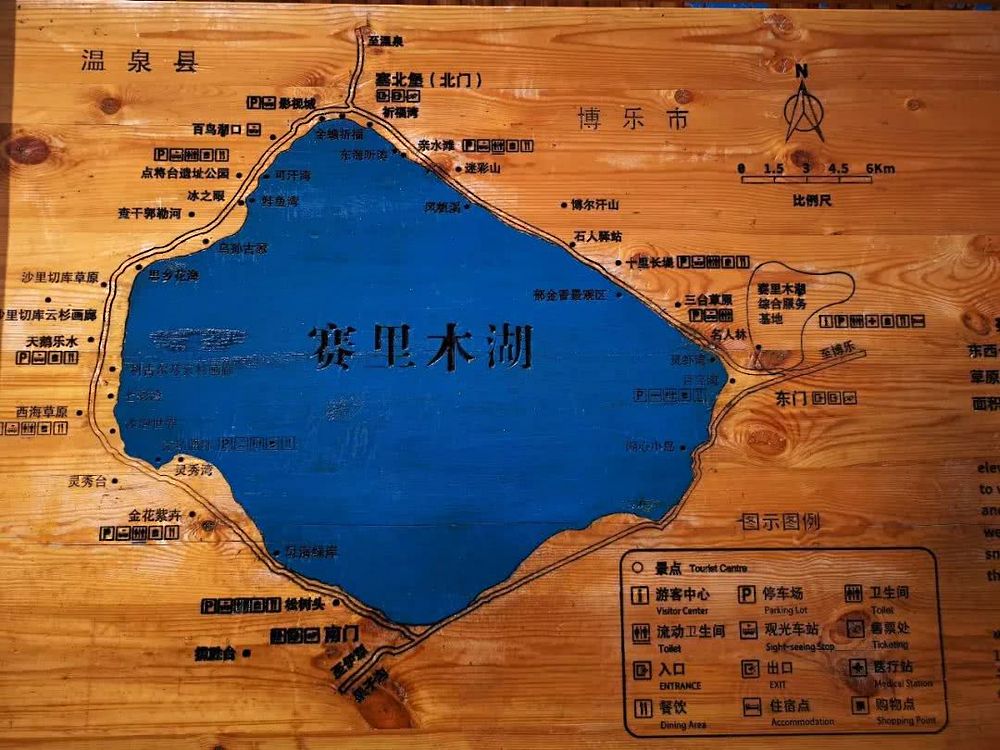 温泉县
至温泉
塞北堡（北门）
影视城
祈福湾
百鸟湖口
金塘祈福
博乐市
N
亲水滩
迷彩山
点将台遗址公园
可汗湾
0 1.5 3 4.5 6Km
比例尺
冰之眼
查干郭勒河
凤栖溪
博尔汗山
乌孙古冢
石人驿站
十里长堤
沙里切库草原
思乡花海
郁金香景观区
赛里木湖
综合服务
基地
三台草原
里切库云杉画廊
天鹅乐水
赛里木湖
名人林
至博乐
东西
草原
面积
东门
西海草原
湖心小岛
灵秀湾
灵秀台
金花紫卉
图示图例
松树头
南门
景点 Tourist Centre
游客中心
Visitor Center
停车场
Parking Lot
卫生间
Toilet
流动卫生间
Toilet
观光车站
Sight-seeing Stop
售票处
Ticketing
入口
ENTRANCE
出口
EXIT
医疗站
Medical Station
餐饮
Dining Area
住宿点
Accommodation
购物点
Shopping Point